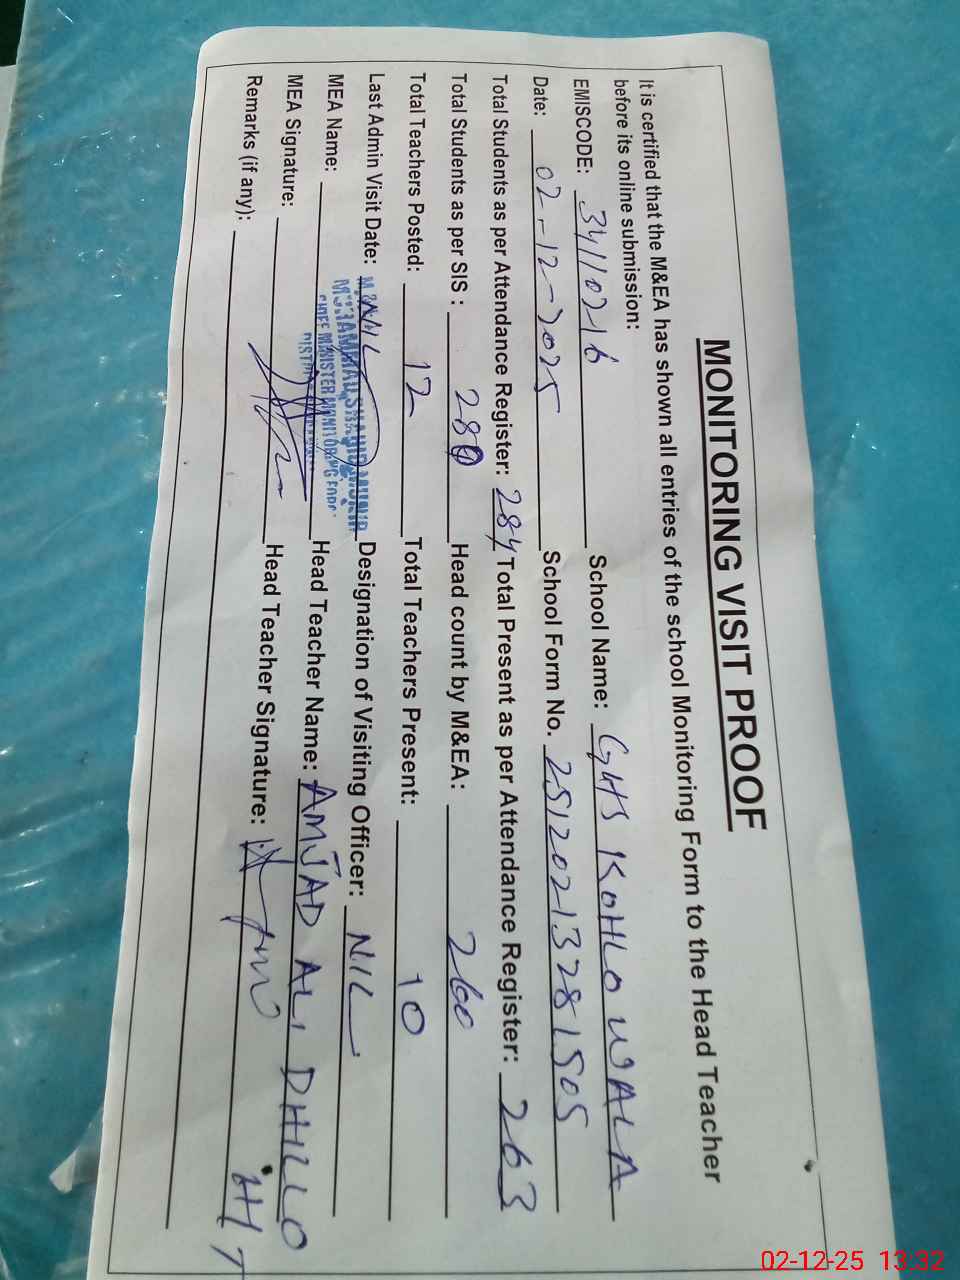 MONITORING VISIT PROOF
It is certified that the M&EA has shown all entries of the school Monitoring Form to the Head Teacher
before its online submission:
EMISCODE: 34110216 School Name: GHS KOHLO WALA
Date: 02-12-2025 School Form No. 25120213281505
Total Students as per Attendance Register: 284 Total Present as per Attendance Register: 263
Total Students as per SIS : 280 Head count by M&EA: 260
Total Teachers Posted: 12 Total Teachers Present: 10
Last Admin Visit Date: NIL Designation of Visiting Officer: NIL
MEA Name: MUHAMMAD SHAHID MUNIR Head Teacher Name: AMJAD ALI DHILLO
CHIEF MINISTER MONITORING FORCE
MEA Signature: Head Teacher Signature: HT
Remarks (if any):
02-12-25 13:32